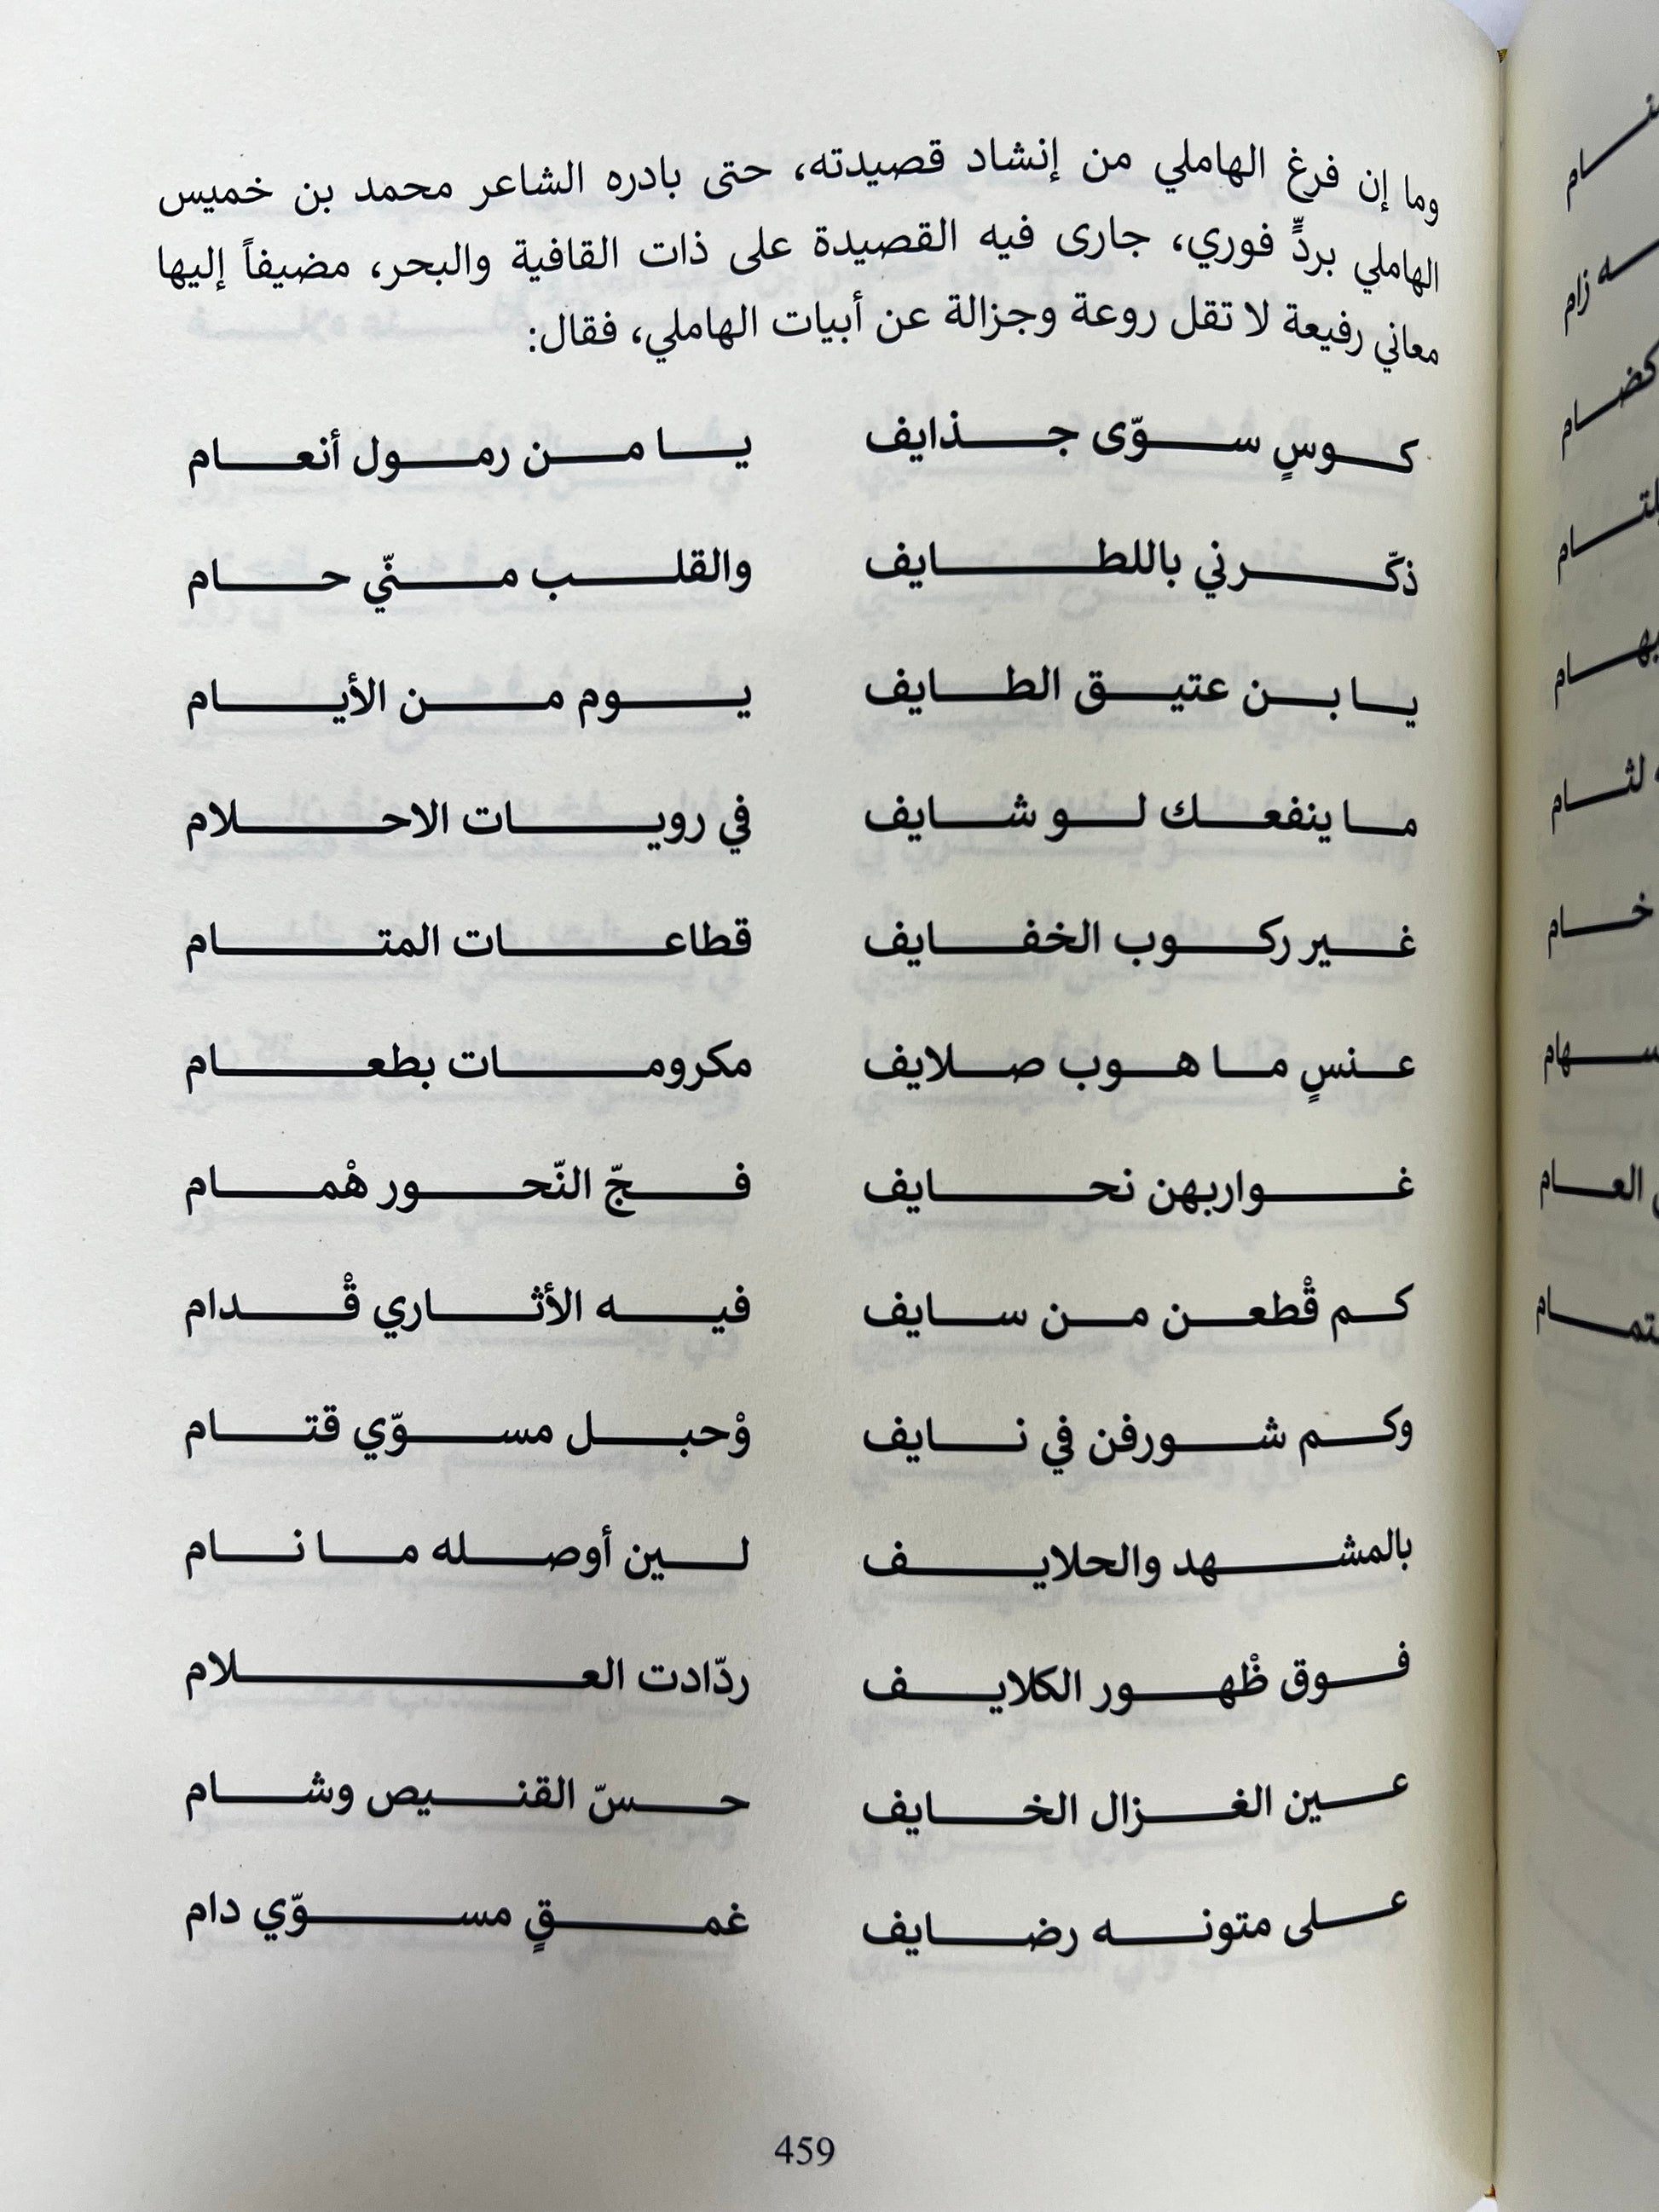 وما إن فرغ الهاملي من إنشاد قصيدته، حتى بادره الشاعر محمد بن خميس
الهاملي بردٍّ فوري، جارى فيه القصيدة على ذات القافية والبحر، مضيفاً إليها
معاني رفيعة لا تقل روعة وجزالة عن أبيات الهاملي، فقال:
كوسٍ سوّى جذايف يا من رمول أنعام
ذكّرني باللطايف والقلب منّي حام
يا بن عتيق الطايف يوم من الأيام
ما ينفعك لو شايف في رويات الاحلام
غير ركوب الخفايف قطاعات المتام
عنسٍ ما هوب صلايف مكرومات بطعام
غواربهن نحايف فجّ النّحور هْمام
كم قْطعن من سايف فيه الأثاري قْدام
وكم شورفن في نايف وْحبل مسوّي قتام
بالمشهد والحلايف لين أوصله ما نام
فوق ظْهور الكلايف ردّادت العلام
عين الغزال الخايف حسّ القنيص وشام
على متونه رضايف غمقٍ مسوّي دام
459
نام
ه زام
كضام
لتام
بهام
ه لثام
خام
سهام
العام
تمام